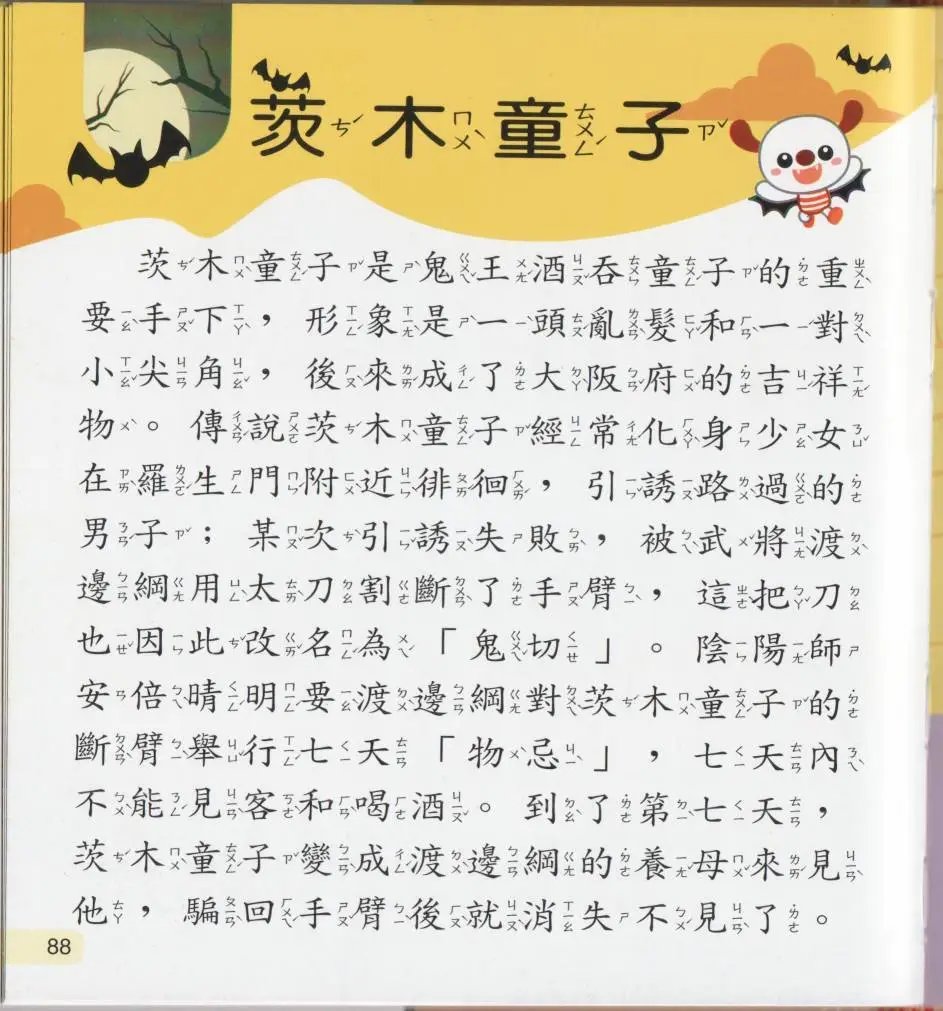 茨木童子
茨木童子是鬼王酒吞童子的重
要手下，形象是一頭亂髮和一對
小尖角，後來成了大阪府的吉祥
物。傳說茨木童子經常化身少女
在羅生門附近徘徊，引誘路過的
男子；某次引誘失敗，被武將渡
邊綱用太刀割斷了手臂，這把刀
也因此改名為「鬼切」。陰陽師
安倍晴明要渡邊綱對茨木童子的
斷臂舉行七天「物忌」，七天內
不能見客和喝酒。到了第七天，
茨木童子變成渡邊綱的養母來見
他，騙回手臂後就消失不見了。
88